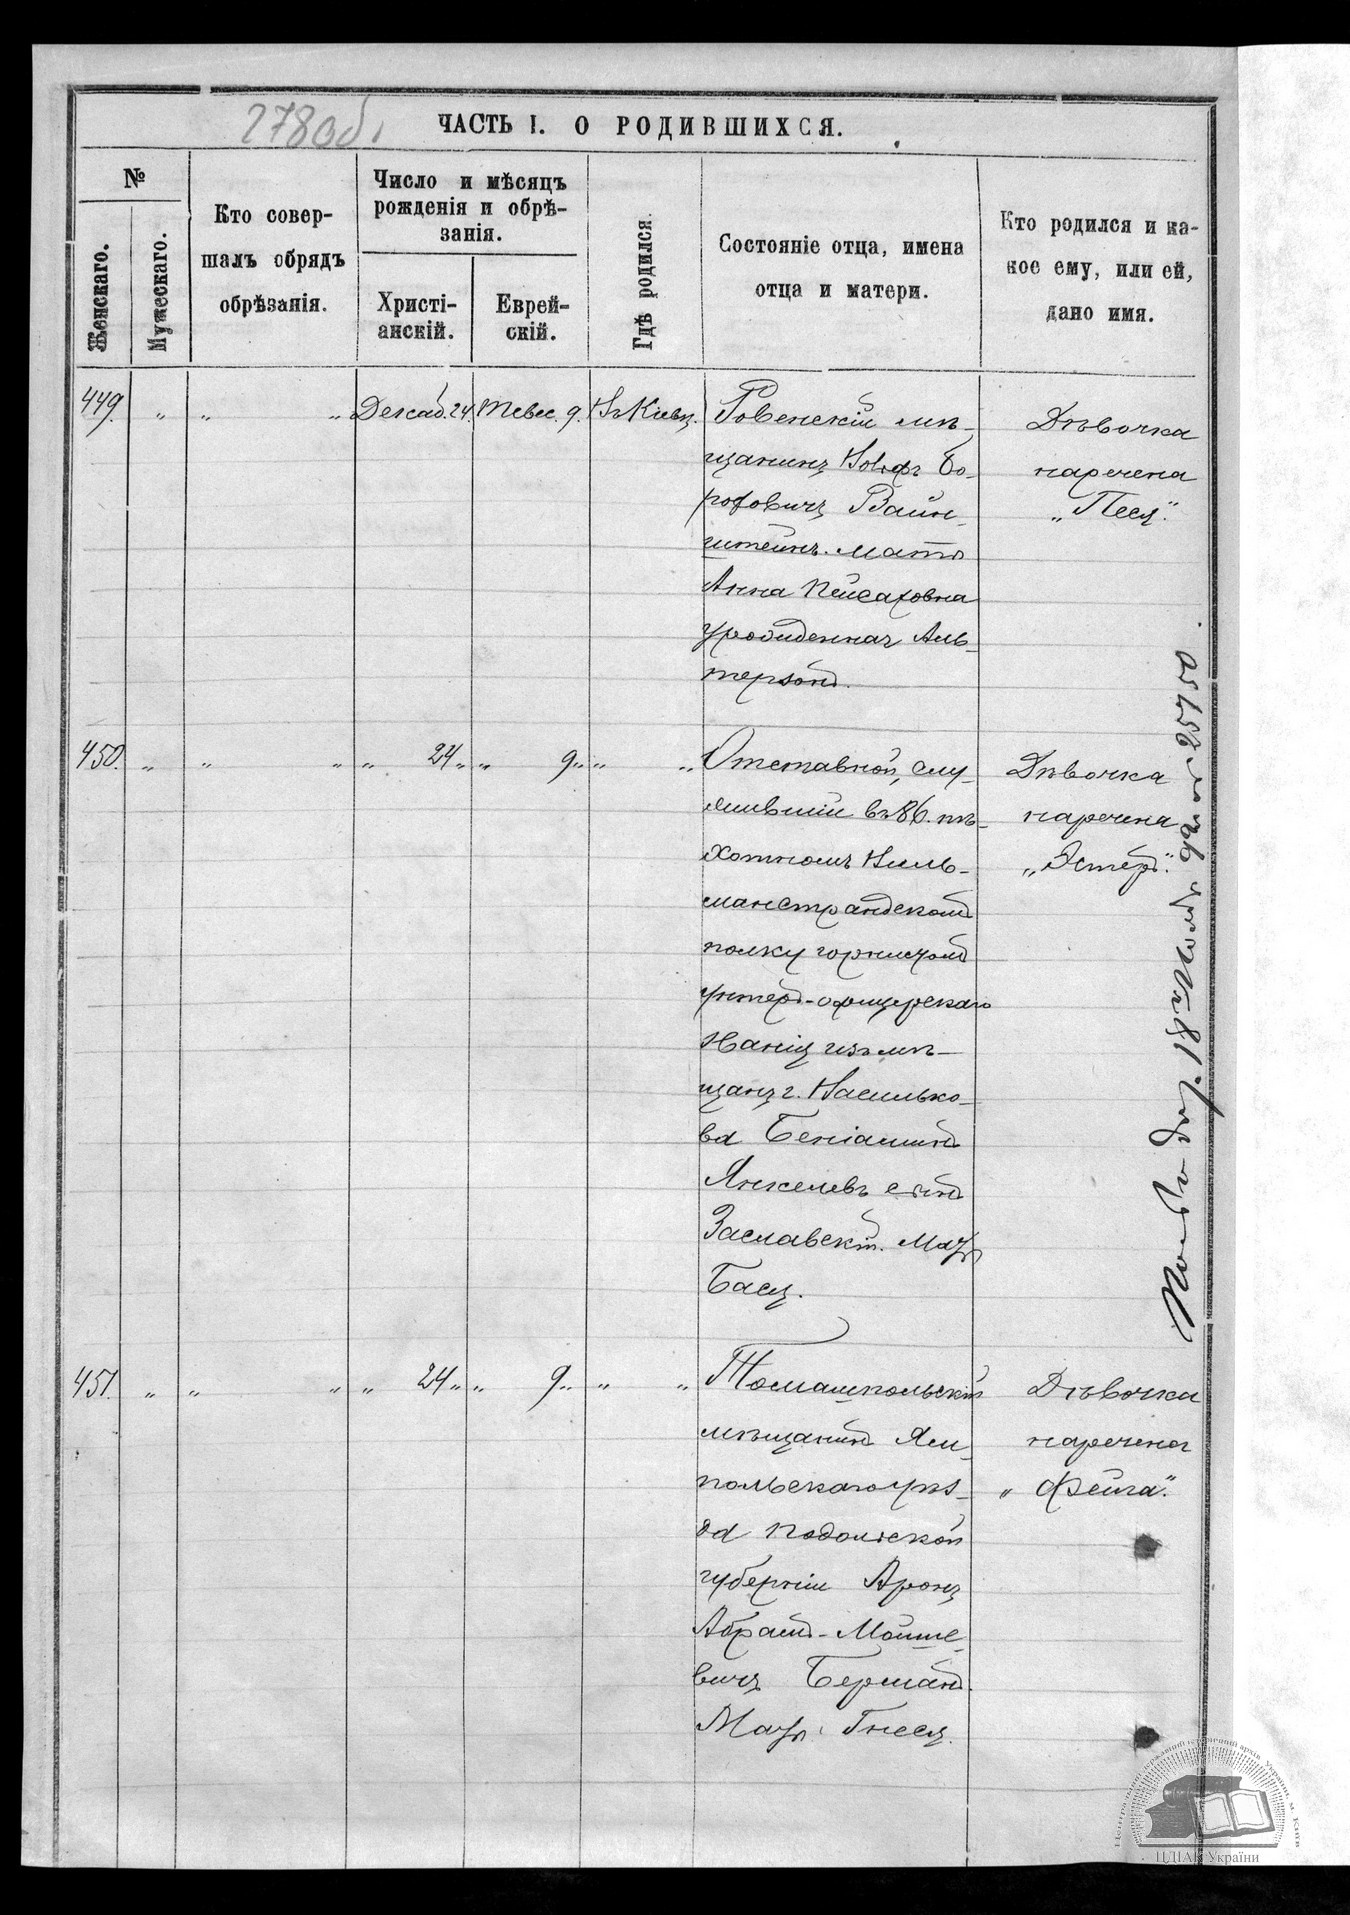 278об.
ЧАСТЬ I. О РОДИВШИХСЯ.
№
Женскаго.
Мужескаго.
Кто совер-
шалъ обрядъ
обрѣзанія.
Число и мѣсяцъ
рожденія и обрѣ-
занія.
Христі-
анскій.
Еврей-
скій.
Гдѣ родился.
Состояніе отца, имена
отца и матери.
Кто родился и ка-
кое ему, или ей,
дано имя.
449. " " " Декаб. 24. Тевес. 9. Въ Кіевѣ.
Ровенскій мѣ-
щанинъ Вольфъ Бо-
роховичъ Вайн-
штейнъ. мать
Анна Пейсаховна
урожденная Аль-
терзонъ.
Дѣвочка
наречена
„Песя".
450. " " " " 24 " " 9 " " "
Отставной, слу-
жившій въ 86. пѣ-
хотномъ Виль-
манстрандскомъ
полку горнистомъ
унтеръ-офицерскаго
званія изъ мѣ-
щанъ г. Василько-
ва Беніаминъ
Янкелевъ сынъ
Заславскій. Мать
Бася.
Дѣвочка
наречена
„Эстеръ".
451. " " " " 24 " " 9 " " "
Томашпольскій
мѣщанинъ Ям-
польскаго уѣз-
да Подольской
губерніи Аронъ
Абрамъ-Мошко-
вичъ Берманъ.
Мать Гнеся.
Дѣвочка
наречена
„Фейга".
18 25750
ЦДІАК України